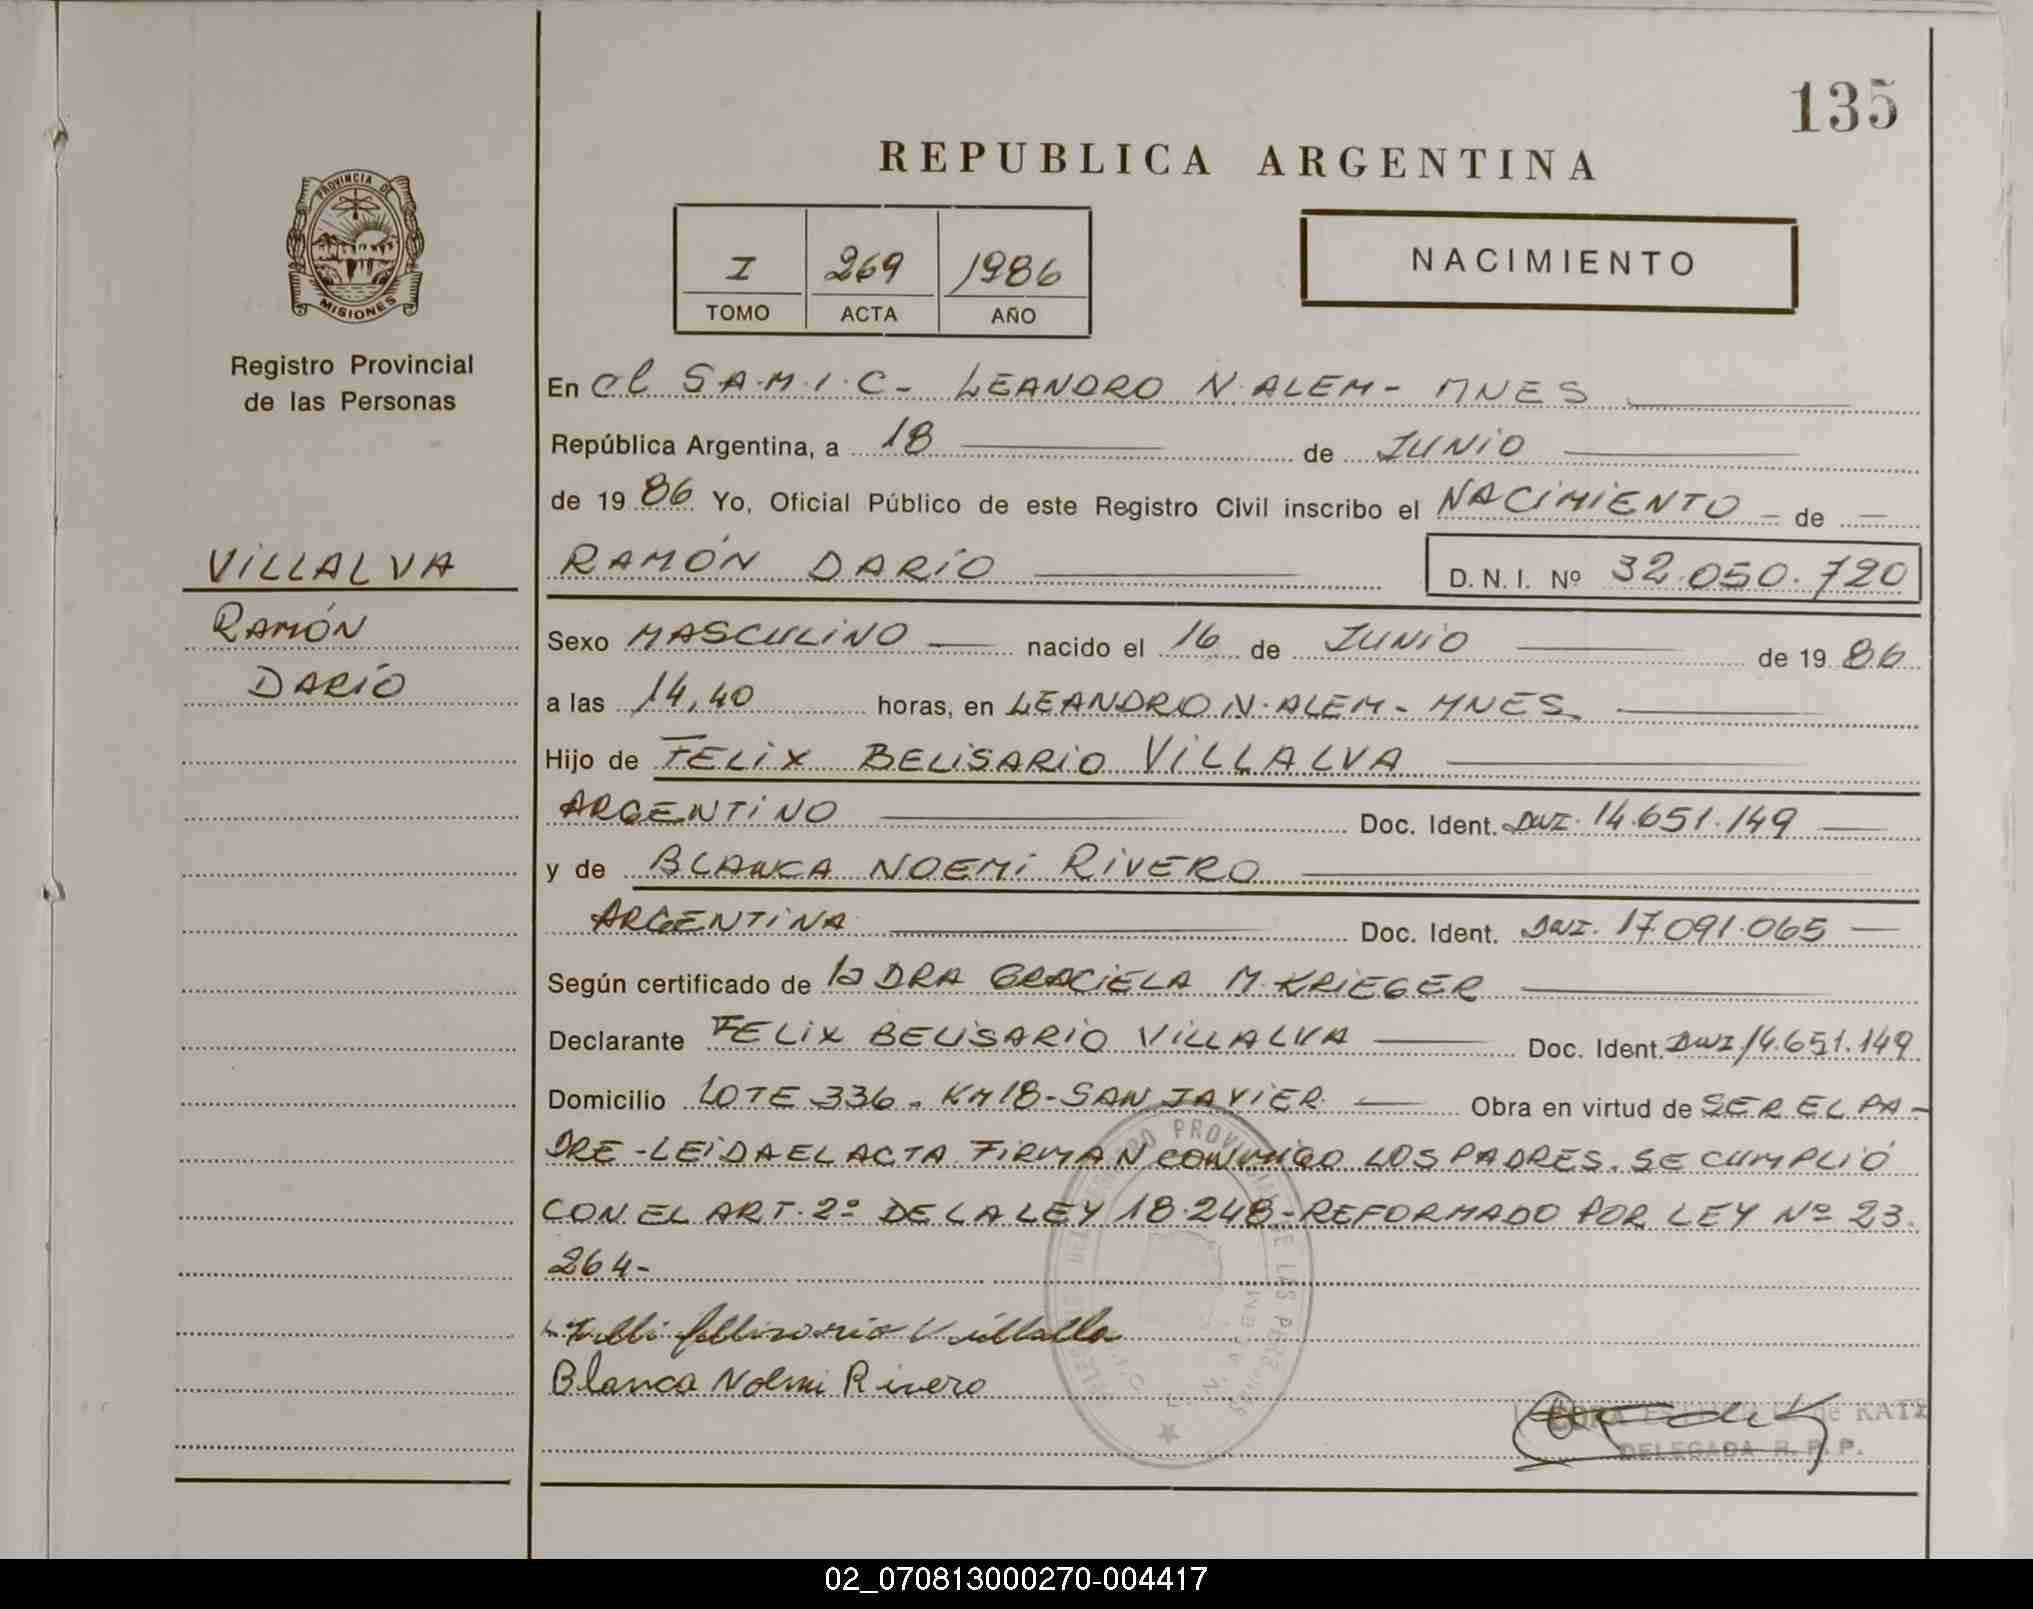 135
REPUBLICA ARGENTINA
PROVINCIA DE
MISIONES
Registro Provincial
de las Personas
I 269 1986
TOMO ACTA AÑO
NACIMIENTO
En el S.A.M.I.C- LEANDRO N.ALEM- MNES
República Argentina, a 18 de JUNIO
de 19 86 Yo, Oficial Público de este Registro Civil inscribo el NACIMIENTO - de -
VILLALVA
RAMÓN
DARÍO
RAMÓN DARÍO D. N. I. Nº 32.050.720
Sexo MASCULINO nacido el 16 de JUNIO de 19 86
a las 14,40 horas, en LEANDRO N.ALEM- MNES
Hijo de FELIX BELISARIO VILLALVA
ARGENTINO Doc. Ident. DNI. 14.651.149
y de BLANCA NOEMI RIVERO
ARGENTINA Doc. Ident. DNI. 17.091.065
Según certificado de la DRA GRACIELA M. KRIEGER
Declarante FELIX BELISARIO VILLALVA Doc. Ident. DNI 14.651.149
Domicilio LOTE 336- KM18-SAN JAVIER Obra en virtud de SER EL PA-
DRE-LEIDA EL ACTA FIRMAN CONMIGO LOS PADRES. SE CUMPLIÓ
CON EL ART. 2º DE LA LEY 18.248-REFORMADO POR LEY Nº 23.
264-
Blanca Noemi Rivero
de KATZ
DELEGADA R. P. P.
02_070813000270-004417